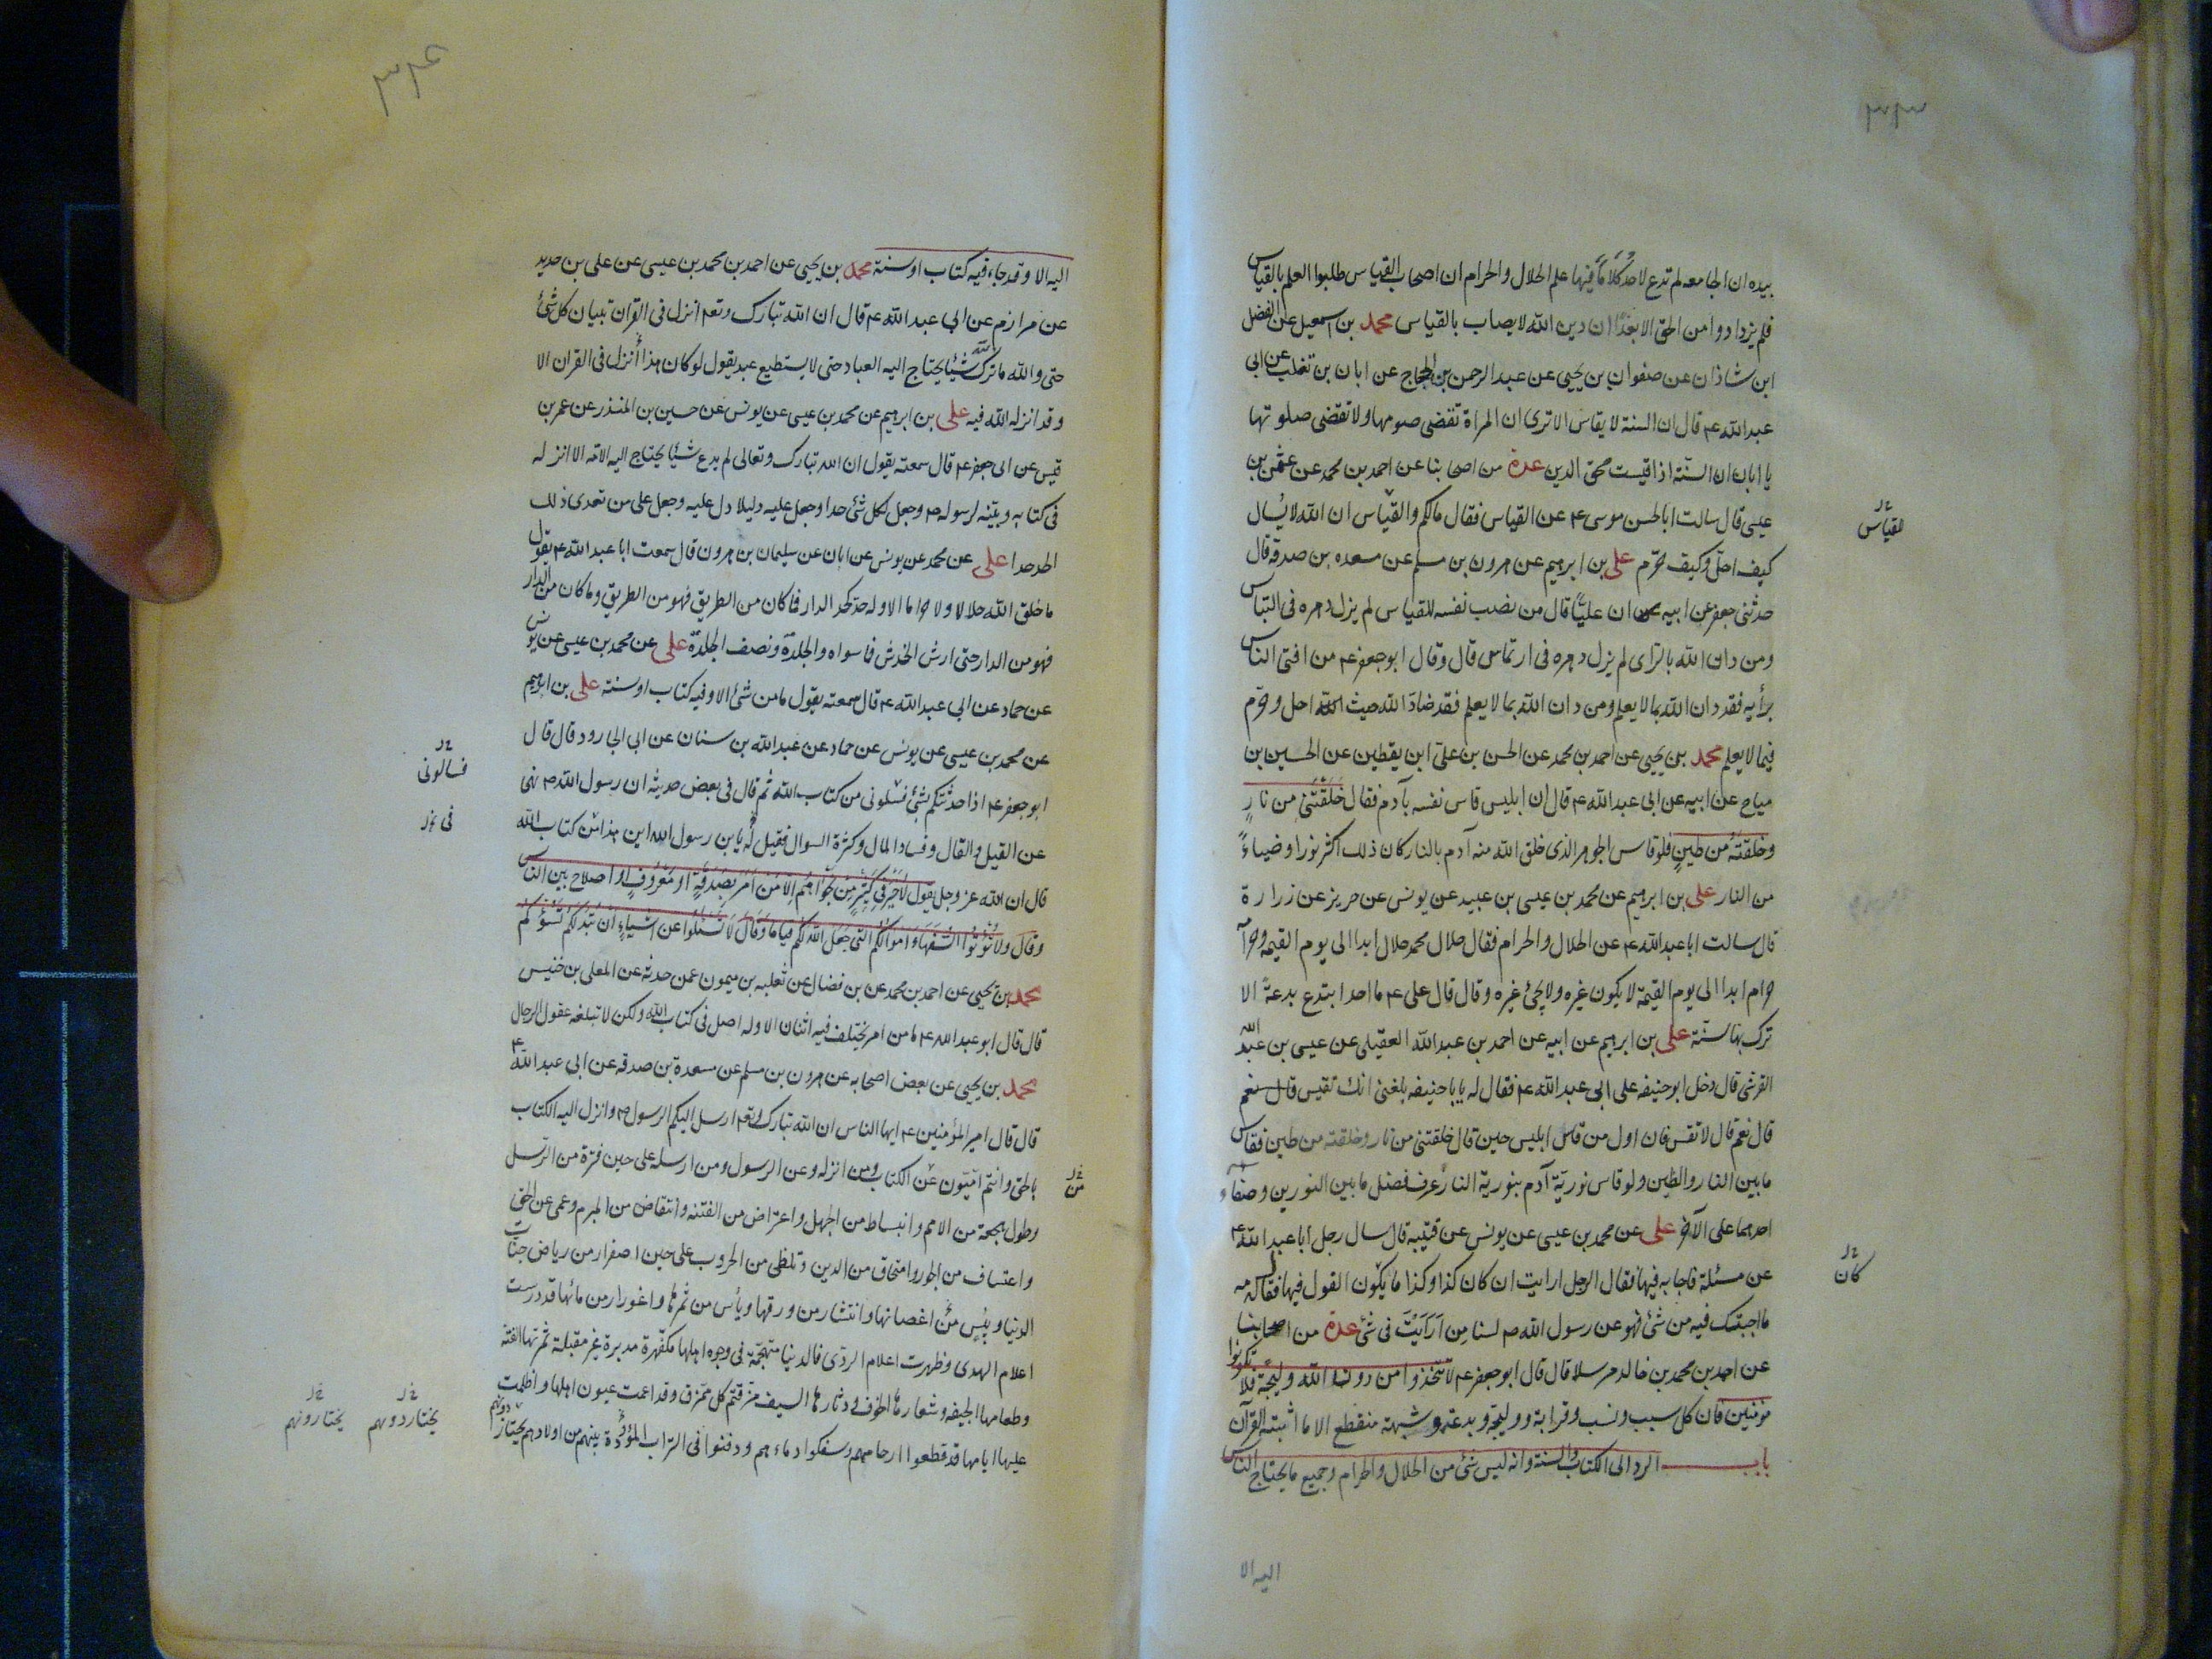 ۳۴۳
بيده ان الجامعه لم تدع لاحد كلاما فيها علم الحلال والحرام ان اصحاب القياس طلبوا العلم بالقياس
فلم يزدادوا من الحق الا بعدا ان دين الله لا يصاب بالقياس محمد بن اسمعيل عن الفضل
ابن شاذان عن صفوان بن يحيى عن عبد الرحمن بن الحجاج عن ابان بن تغلب عن ابى
عبد الله ع قال ان السنة لا يقاس الا ترى ان المراة تقضى صومها ولا تقضى صلوتها
يا ابان ان السنّة اذا قيست محق الدين عدة من اصحابنا عن احمد بن محمد عن عثمن بن
عيسى قال سالت ابا الحسن موسى ع عن القياس فقال مالكم والقياس ان الله لا يُسال
للقياس
كيف احلّ وكيف حرّم على بن ابرهيم عن هرون بن مسلم عن مسعده بن صدقه قال
حدثنى جعفر عن ابيه ان عليّا قال من نصب نفسه للقياس لم يزل دهره فى التباس
ومن دان الله بالراى لم يزل دهره فى ارتماس قال وقال ابو جعفر ع من افتى الناس
برأيه فقد دان الله بما لا يعلم ومن دان الله بما لا يعلم فقد ضادّ الله حيث احل وحرّم
فيما لا يعلم محمد بن يحيى عن احمد بن محمد عن الحسن بن على ابن يقطين عن الحسين بن
مياح عن ابيه عن ابى عبد الله ع قال ان ابليس قاس نفسه بآدم فقال خَلَقْتَنى مِن نارٍ
وخلقتَهُ مِن طينٍ فلو قاس الجوهر الذى خلق الله منه آدم بالنار كان ذلك اكثر نورا وضياءً
من النار على بن ابرهيم عن محمد بن عيسى بن عبيد عن يونس عن حريز عن زرارة
قال سالت ابا عبد الله ع عن الحلال والحرام فقال حلال محمد حلال ابدا الى يوم القيمة وحرامه
حرام ابدا الى يوم القيمة لا يكون غيره ولا يجئ غيره وقال قال على ع ما احد ابتدع بدعةً الا
ترك بها سنّة على بن ابرهيم عن ابيه عن احمد بن عبد الله العقيلى عن عيسى بن عبد الله
القرشى قال دخل ابو حنيفه على ابى عبد الله ع فقال له يابا حنيفه بلغنى انك تقيس قال نعم
قال نعم قال لا تقس فان اول من قاس ابليس حين قال خلقتنى من نار وخلقته من طين فقاس
ما بين النار والطين ولو قاس نوريّة آدم بنورية النار عرف فضل ما بين النورين وصفاء
احدهما على الآخر على عن محمد بن عيسى عن يونس عن قتيبه قال سال رجل أبا عبد الله ع
عن مسئلة فاجابه فيها فقال الرجل ارايت ان كان كذا وكذا ما يكون القول فيها فقال له مه
كان
ما اجبتك فيه من شئ فهو عن رسول الله ص لسنا مِن اَرَاَيْتَ فى شئ عدة من اصحابنا
عن احمد بن محمد بن خالد مرسلا قال قال ابو جعفر ع لا تتخذوا من دون الله وليجة فلا تكونوا
مؤمنين فان كل سبب ونسب وقرابة ووليجة وبدعة وشبهة منقطع الا ما اثبته القرآن
باب الرد الى الكتاب والسنة وانه ليس شئ من الحلال والحرام وجميع ما يحتاج الناس
اليه الا
۳۴۴
اليه الا وقد جاء فيه كتاب او سنة محمد بن يحيى عن احمد بن محمد بن عيسى عن على بن حديد
عن مرازم عن ابى عبد الله ع قال ان الله تبارك وتع انزل فى القران تبيان كل شئ
حتى والله ما ترك الله شيئا يحتاج اليه العباد حتى لا يستطيع عبد يقول لو كان هذا أُنزل فى القران الا
وقد انزله الله فيه على بن ابرهيم عن محمد بن عيسى عن يونس عن حسين بن المنذر عن عمر بن
قيس عن ابى جعفر ع قال سمعته يقول ان الله تبارك وتعالى لم يدع شيئا يحتاج اليه الامه الا انزله
فى كتابه وبيّنه لرسوله ص وجعل لكل شئ حدا وجعل عليه دليلا دل عليه وجعل على من تعدى ذلك
الحد حدا على عن محمد عن يونس عن ابان عن سليمان بن هرون قال سمعت ابا عبد الله ع يقول
ما خلق الله حلالا ولا حراما الا وله حد كحد الدار فما كان من الطريق فهو من الطريق وما كان من الدار
فهو من الدار حتى ارش الخدش فما سواه والجلدة ونصف الجلدة على عن محمد بن عيسى عن يونس
عن حماد عن ابى عبد الله ع قال سمعته يقول ما من شئ الا وفيه كتاب او سنة على بن ابرهيم
عن محمد بن عيسى عن يونس عن حماد عن عبد الله بن سنان عن ابى الجارود قال قال
فسالونى
ابو جعفر ع اذا حدثتكم بشئ فسئلونى من كتاب الله ثم قال فى بعض حديثه ان رسول الله ص نهى
عن القيل والقال وفساد المال وكثرة السوال فقيل له يا بن رسول الله اين هذا من كتاب الله
قال ان الله عز وجل يقول لاخير فى كثيرٍ مِن نجواهُم اِلّا مَن اَمَرَ بصَدَقةٍ او معْروفٍ او اصلاح بين الناس
وقال ولا تُؤتوا السُفهاء اموالكم التى جَعَل الله لكم قياما وقال لا تسئلوا عن اشياءٍ ان تُبدَ لكم تَسُؤكُم
محمد بن يحيى عن احمد بن محمد عن بن فضال عن ثعلبه بن ميمون عمن حدثه عن المعلى بن خنيس
قال قال ابو عبد الله ع ما من امر يختلف فيه اثنان الا وله اصل فى كتاب الله ولكن لا تبلغه عقول الرجال
محمد بن يحيى عن بعض اصحابه عن هرون بن مسلم عن مسعدة بن صدقه عن ابى عبد الله ع
قال قال امير المؤمنين ع ايها الناس ان الله تبارك وتع ارسل اليكم الرسول ص وانزل اليه الكتاب
بالحق وانتم امّيّون عن الكتاب ومن انزله وعن الرسول ومن ارسله على حين فترة من الرسل
من
وطول هجعة من الامم وانبساط من الجهل واعتراض من الفتنة وانتقاض من المبرم وعمى عن الحق
واعتساف من الجور وامتحاق من الدين وتلظى من الحروب على حين اصفرار من رياض جنات
الدنيا ويبس من اغصانها وانتشار من ورقها ويأس من ثمرها واغورار من مائها قد درست
اعلام الهدى وظهرت اعلام الردى فالدنيا متهجّمة فى وجوه اهلها مكفهرة مدبرة غير مقبلة ثمرتها الفتنة
وطعامها الجيفه وشعارها الخوف ودثارها السيف مزقتم كل ممزق وقد اعمت عيون اهلها واظلمت
عليها ايامها قد قطعوا ارحامهم وسفكوا دماءهم ودفنوا فى التراب الموؤدة بينهم من اولادهم يجتاز دونهم
يختار دونهم
يختارونهم